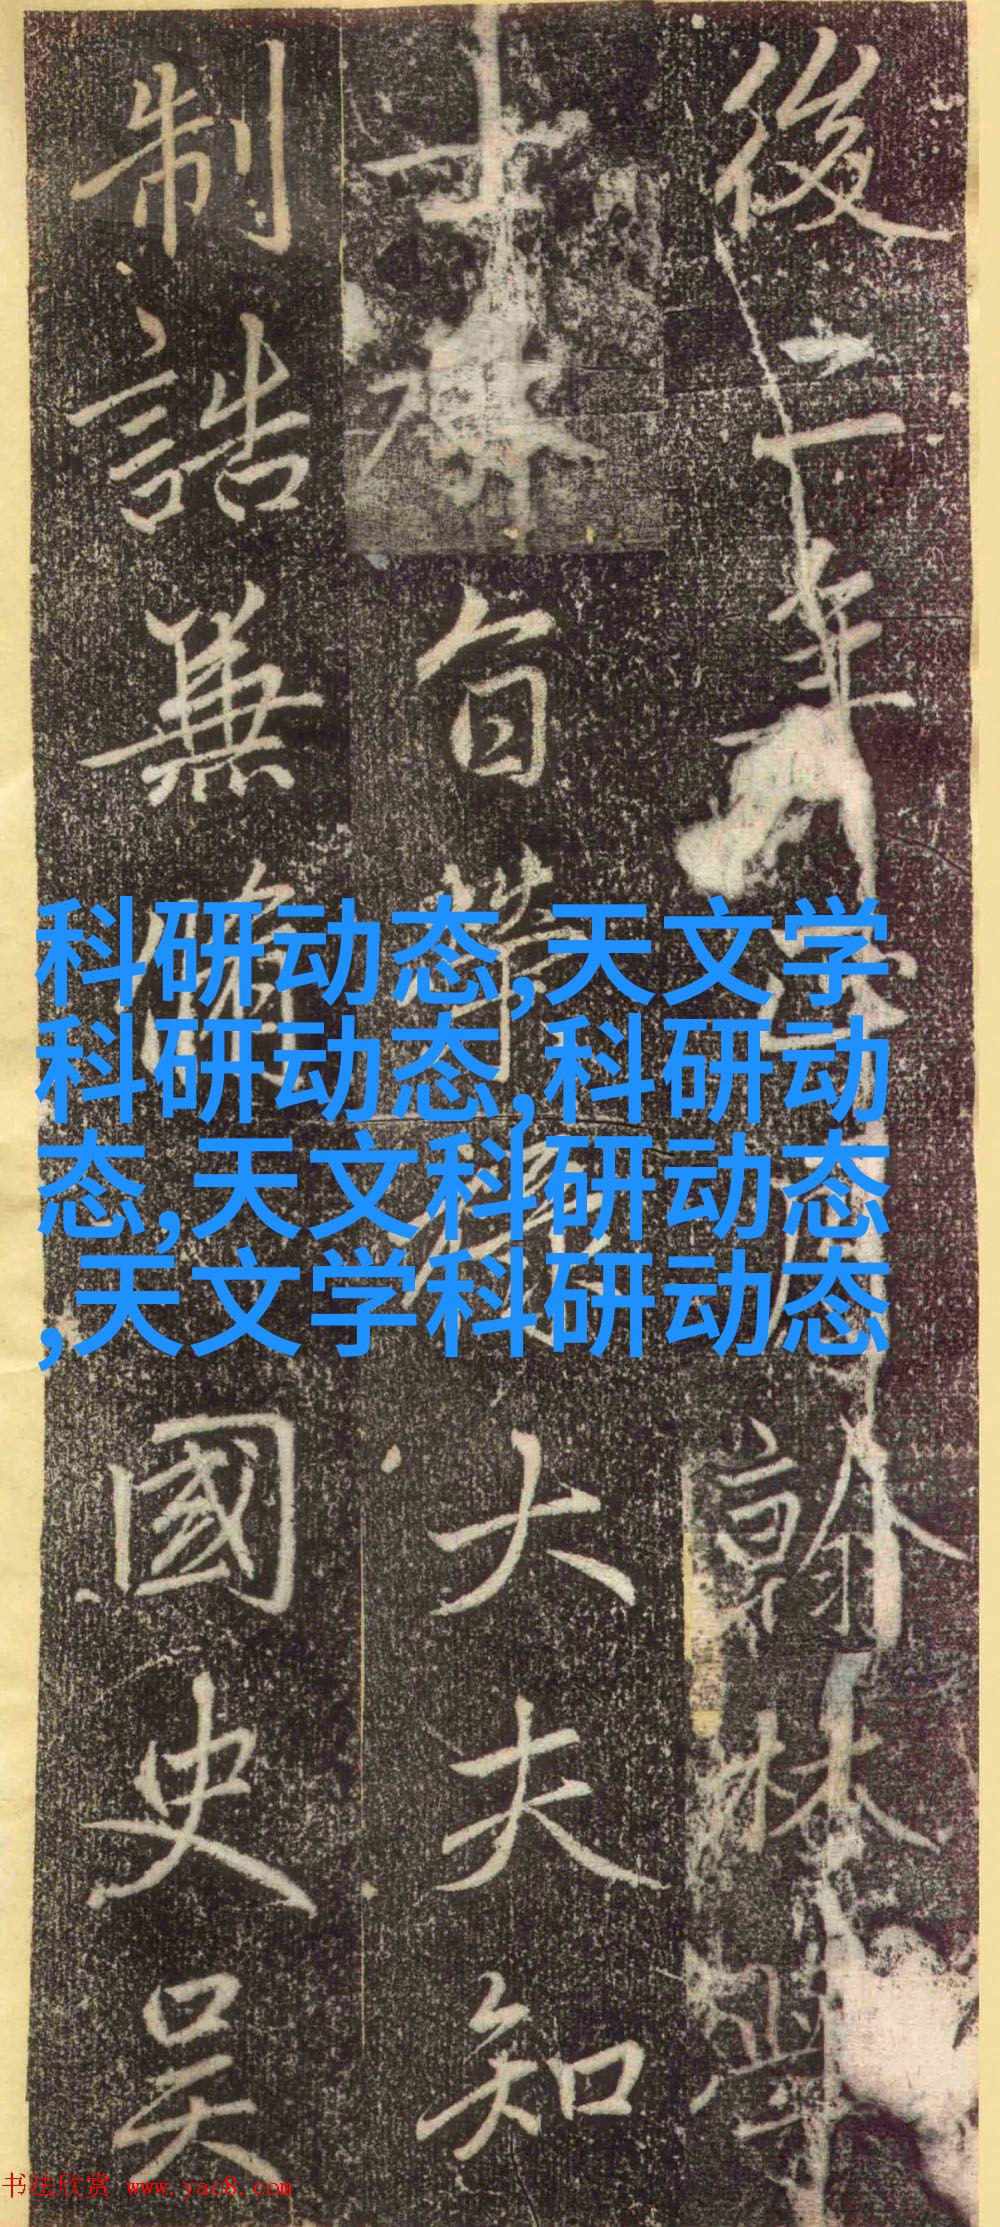 後二年翰林學
士承旨大夫知
制誥兼國史吳
科研动态,天文学
科研动态,科研动
态,天文科研动态
,天文学科研动态
书法欣赏 www.yac8.com